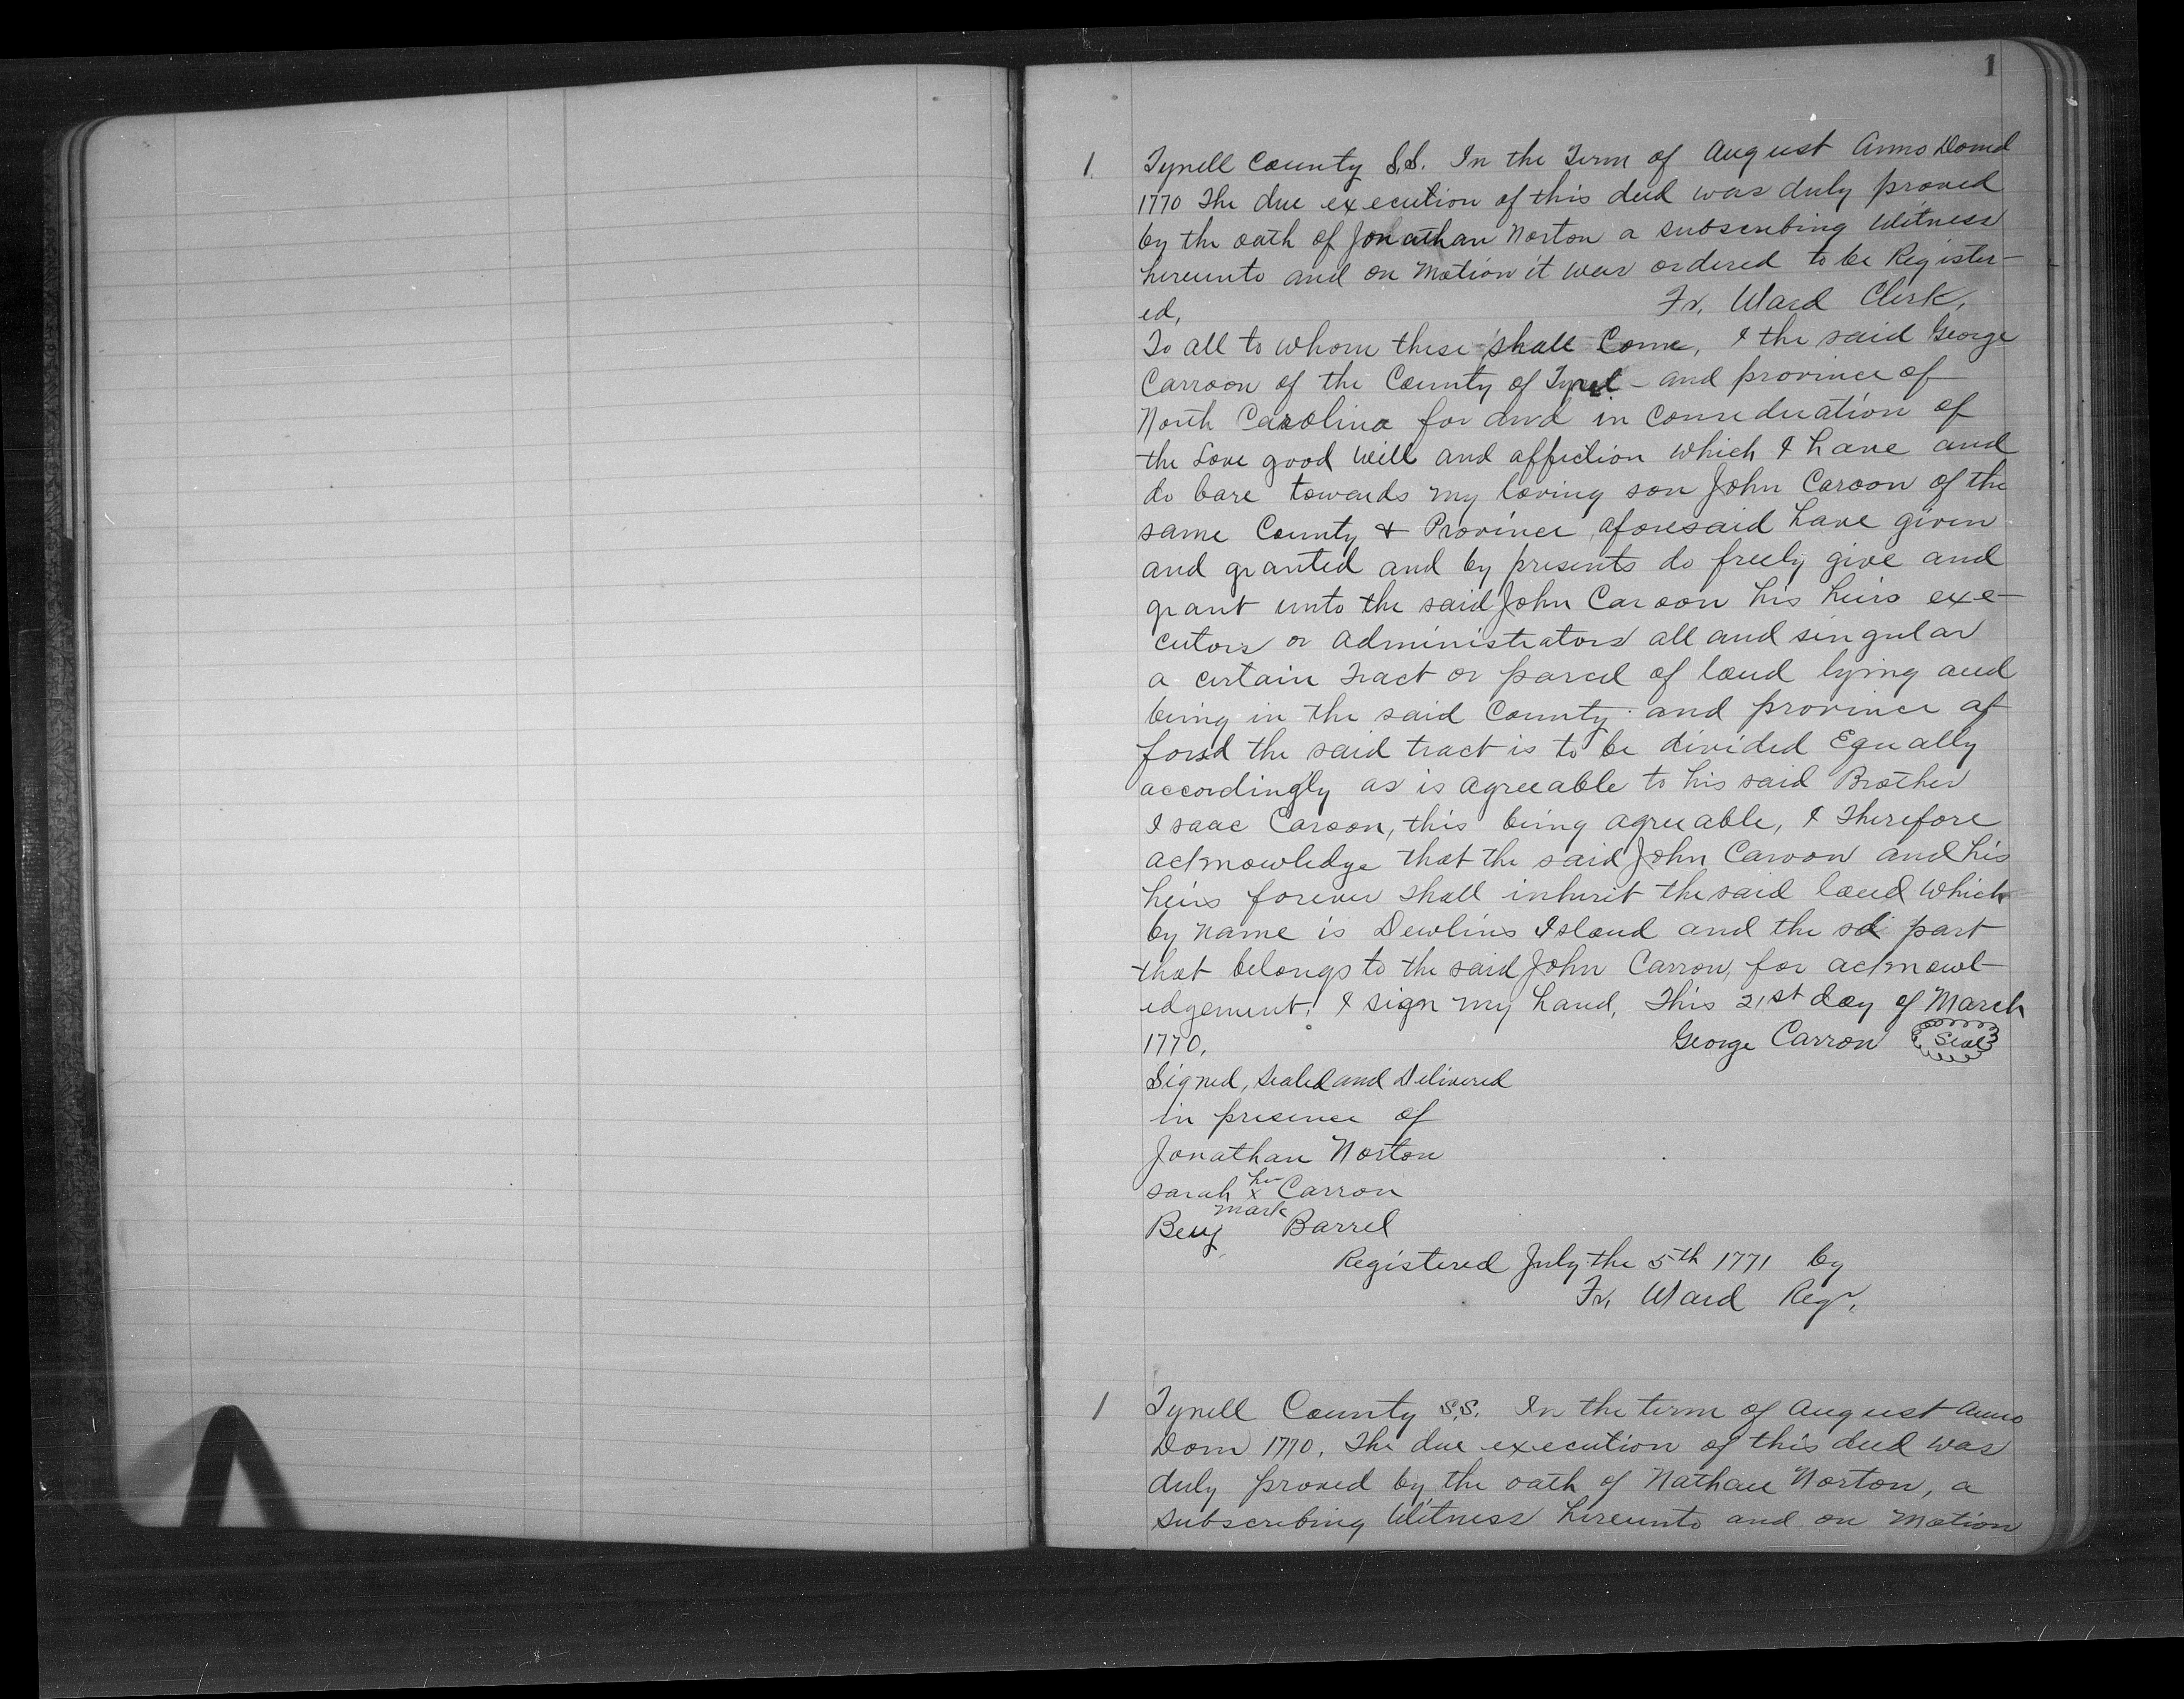 1
1. Tyrrell County S.S. In the Term of August Anno Domd
1770 The due execution of this deed was duly proved
by the oath of Jonathan Norton a subscribing Witness
hereunto and on Motion it was ordered to be Register-
ed, Fr. Ward Clerk,
To all to whom these shall Come, I the said George
Carroon of the County of Tyrel - and province of
North Carolina for and in Consideration of
the Love good Will and affection which I have and
do bare towards my loving son John Caroon of the
same County & Province aforesaid have given
and granted and by presents do freely give and
grant unto the said John Caroon his heirs exe-
cutors or administrators all and singular
a certain Tract or parcel of land lying and
being in the said County and province af
forsd the said tract is to be divided Equally
accordingly as is agreeable to his said Brother
Isaac Caroon, this being agreeable, I Therefore
acknowledge that the said John Caroon and his
heirs forever shall inherit the said land which
by name is Dewlins Island and the sd part
that belongs to the said John Carron, for acknowl-
edgement, I sign my hand, This 21st day of March
1770, George Carron Seal
Signed, Sealed and Delivered
in presence of
Jonathan Norton
Sarah her x Carron
mark
Benj Barrel
Registered July the 5th 1771 by
Fr, Ward Regr.
1 Tyrrell County S.S. In the term of August Anno
Dom 1770, The due execution of this deed was
duly proved by the oath of Nathan Norton, a
subscribing Witness hereunto and on Motion